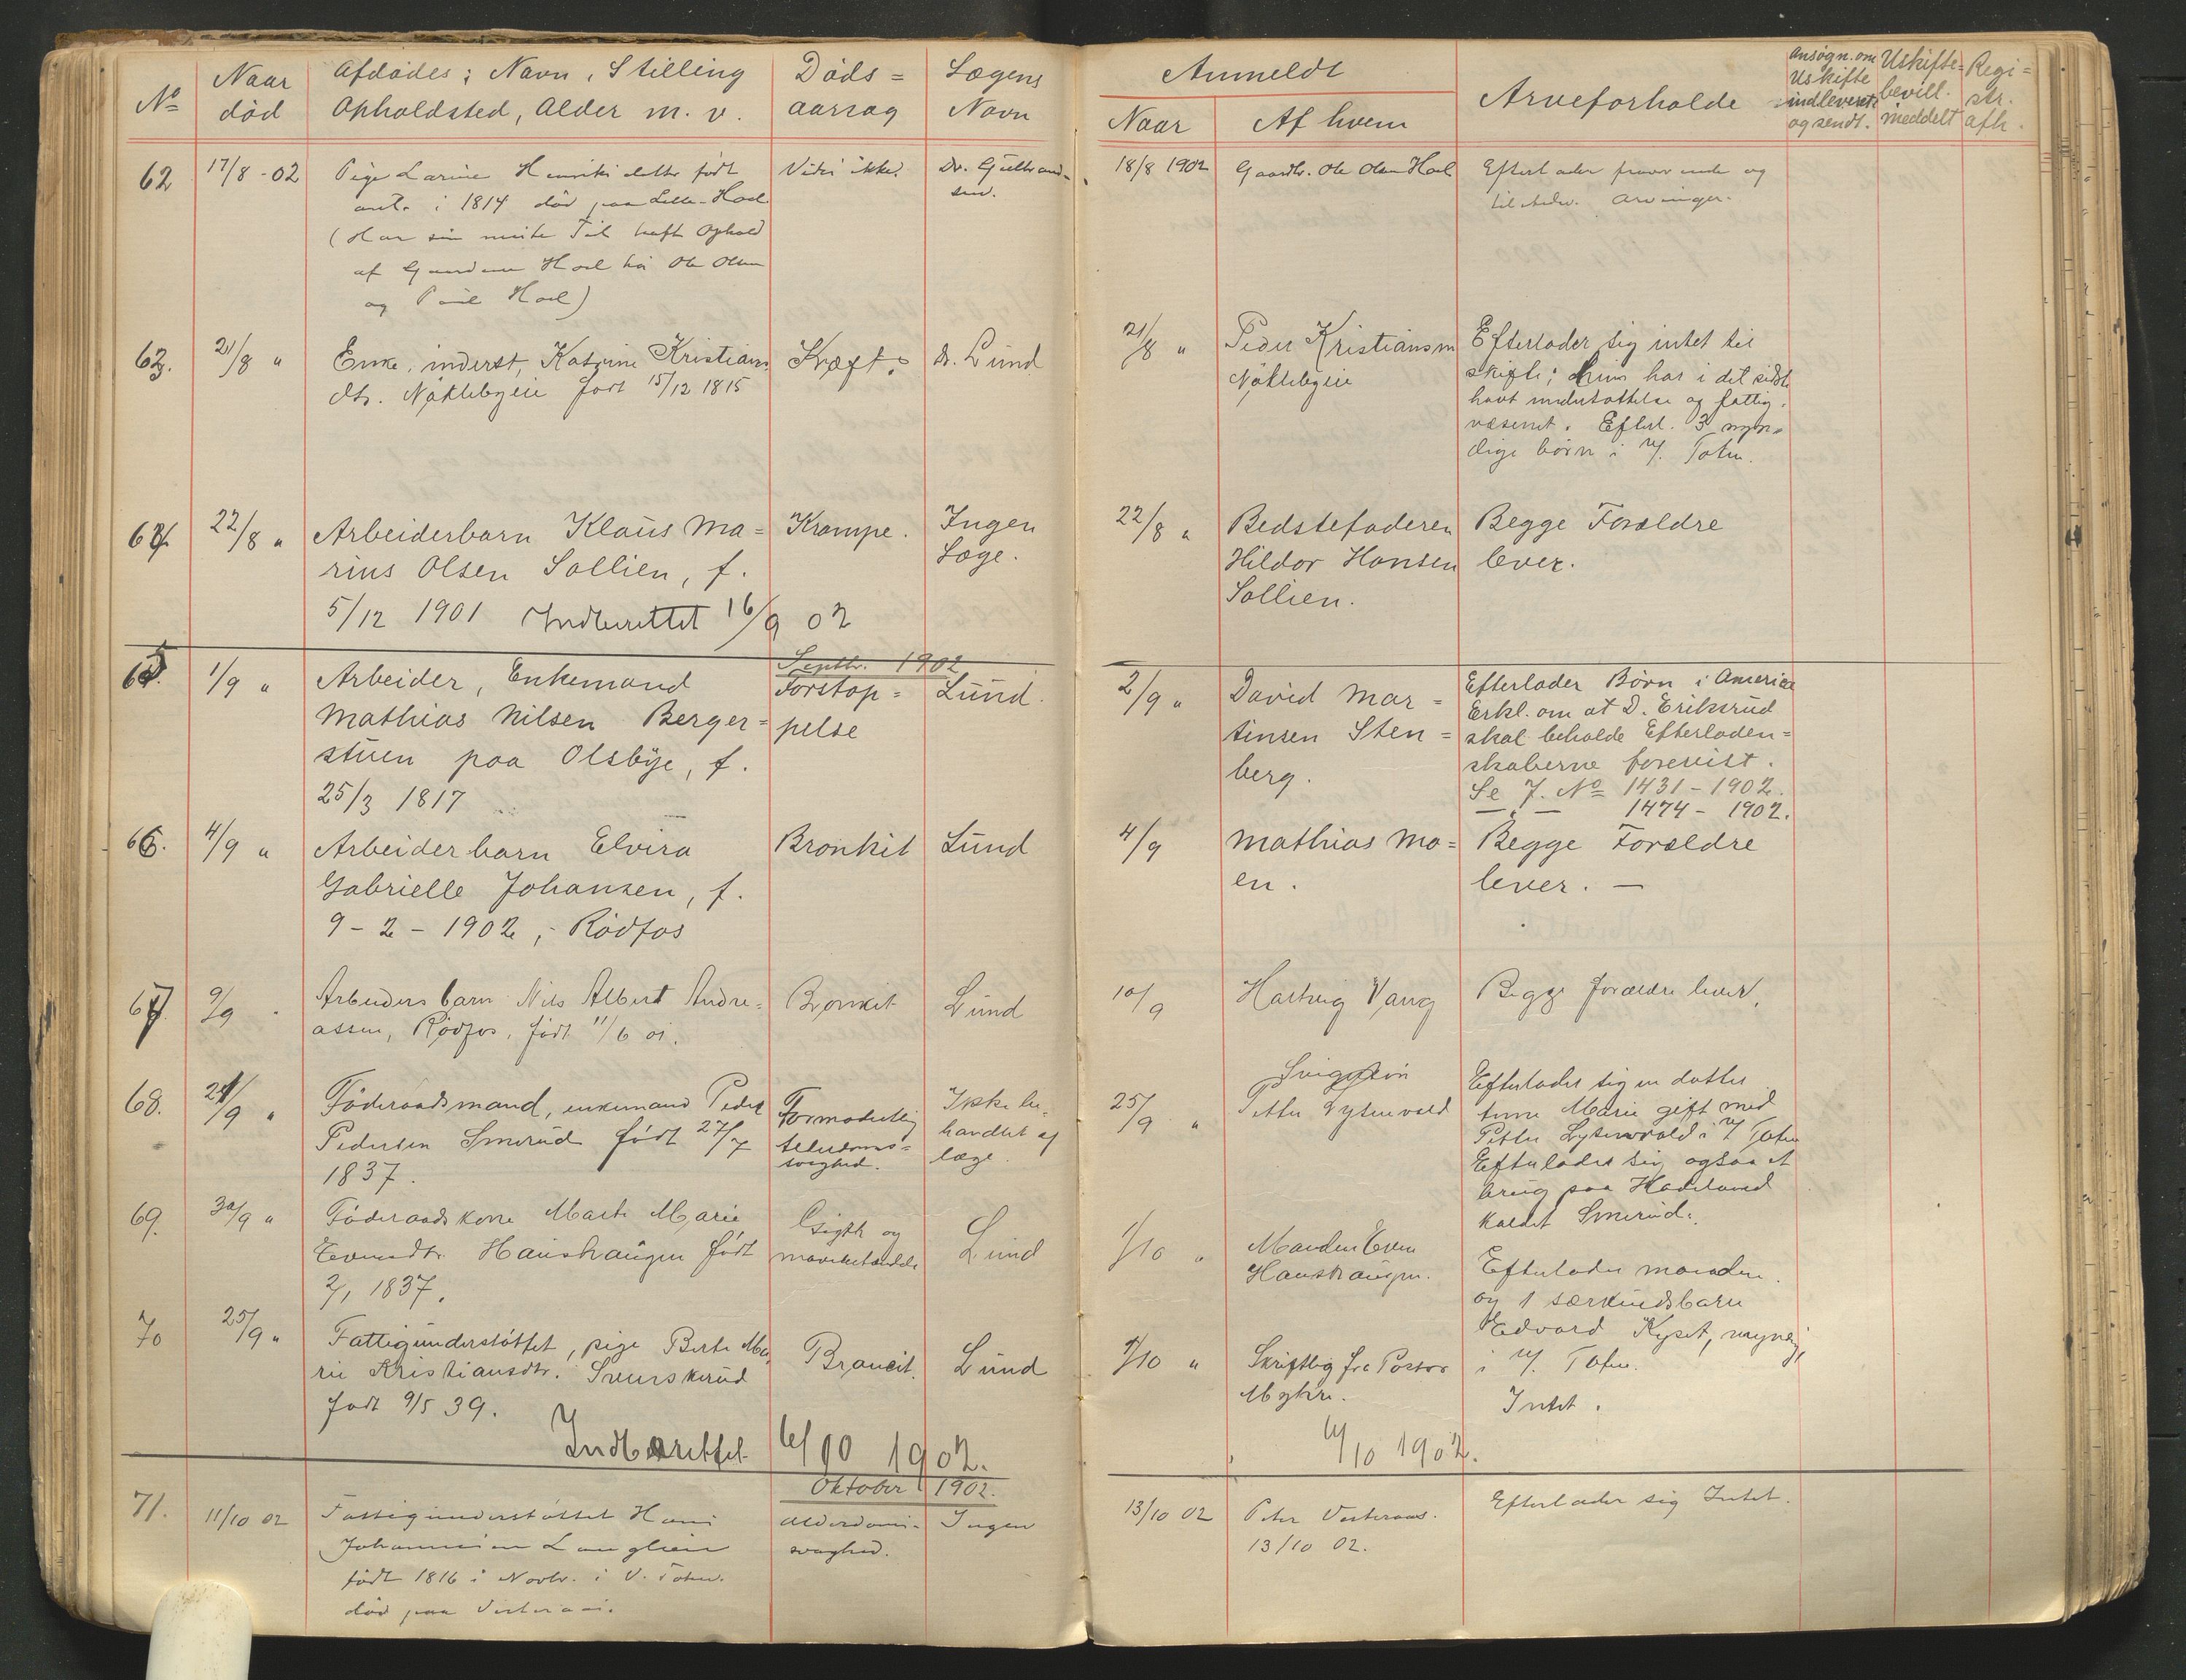 No
Naar
død
Afdødes; Navn, Stilling
Opholdsted, Alder m. v.
Døds=
aarsag
Lægens
Navn
Anmeldt
Naar
Af hvem
Arveforholde
Ansøgn. om
Uskifte
indleveret
og sendt.
Uskifte=
bevill.
meddelt
Regi=
str.
afh.
62
17/8 - 02
Pige Larine Henriksdatter født
i 1814 død paa Lille-Hoel
(Har sin meste Tid havt Ophold
af Gaardene Hoel hos Ole Olsen
og Paul Hoel)
Vides ikke.
Dr. Gulbrand-
sen.
18/8 1902
Gaardbr. Ole Olsen Hoel
Efterlader fraværende og
tilstedev. Arvinger.
63.
21/8 "
Enke, inderst, Katrine Kristians
dtr. Nøklebyeie født 15/12 1815
Kræft.
dr. Lund
21/8 "
Peder Kristiansen
Nøklebyeie
Efterlader sig intet til
skifte; hun har i det sidste
havt understøttelse af fattig-
væsenet. Efterl. 3 myn-
dige børn i V. Toten.
64.
22/8 "
Arbeiderbarn Klaus Ma=
rius Olsen Sollien, f.
5/12 1901 Indberettet 16/9 02
Krampe.
Ingen
Læge.
22/8 "
Bedstefaderen
Hildor Hansen
Sollien.
Begge Forældre
lever.
Septbr. 1902
65.
1/9 "
Arbeider, Enkemand
Mathias Nilsen Berger=
stuen paa Olsbye, f.
25/3 1817
Forstop=
pelse
Lund.
2/9 "
David Mar=
tinsen Sten=
berg.
Efterlader Børn i America
Erkl. om at D. Eriksrud
skal beholde Efterladen=
skaberne forevist.
Se J. No 1431 - 1902.
— " — 1474 - 1902.
66.
4/9 "
Arbeiderbarn Elvira
Gabrielle Johansen, f.
9 - 2 - 1902, - Rødfos
Bronkit
Lund
4/9
Mathias Mo=
en.
Begge Forældre
lever. —
67
9/9 "
Arbeiders barn Nils Albert Andre-
assen, Rødfos, født 11/6 01.
Bronkit
Lund
10/9
Hartvig Vang
Begge forældre lever.
68.
24/9 "
Føderaadsmand, enkemand Peder
Pedersen Smerud født 27/7
1837.
Formodentlig
alderdoms=
svaghed.
Ikke be-
handlet af
læge.
25/9 "
Svigersøn
Petter Lystenvold
Efterlader sig en datter
Marie gift med
Petter Lystenvold i V Toten
Efterlader sig ogsaa et
brug paa Hadeland
kaldet Smerud.
69.
30/9 "
Føderaadskone Marte Marie
Evensdtr. Haushaugen født
2/1 1837.
Gigt og
mavebetændelse
Lund
1/10 "
Manden Even
Haushaugen.
Efterlader manden
og 1 særkuldsbarn
Edvard Kyset, myndig,
i V. Toten.
70
25/9 "
Fattigunderstøttet, pige Berte Ma
rie Kristiansdtr. Svenskerud
født 9/5 39.
Broncit.
Lund
4/10 "
Skriftlig fra Pastor
Myhre.
Intet.
Indberettet 6/10 1902.
6/10 1902.
Oktober 1902.
71.
11/10 02
Fattigunderstøttet Hans
Johannesen Langlien
født 1816 i Novbr. i V. Toten.
død paa Vesteraas.
Alderdoms-
svaghed.
Ingen
13/10 02
Peter Vesteraas.
13/10 02.
Efterlader sig Intet.